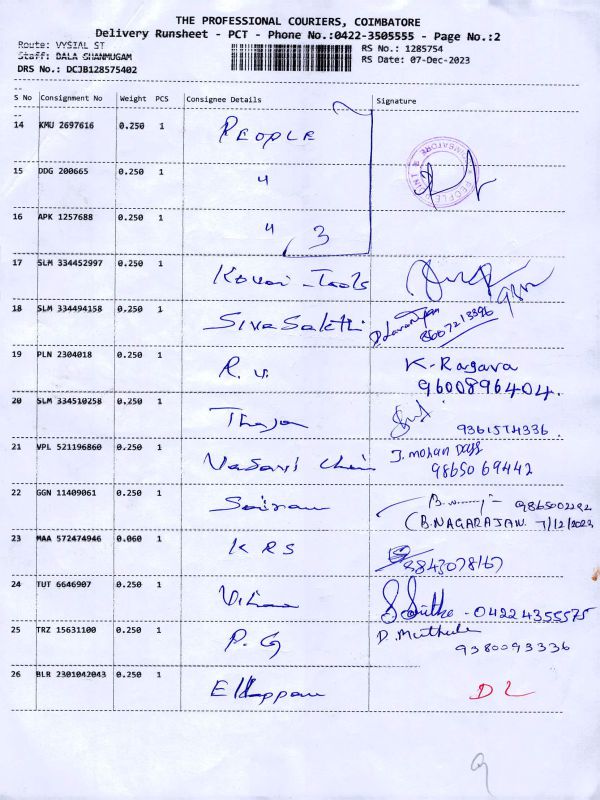 THE PROFESSIONAL COURIERS, COIMBATORE
Delivery Runsheet - PCT - Phone No.:0422-3505555 - Page No.:2
Route: VYSIAL ST
RS No.: 1285754
Staff: BALA SHANMUGAM
RS Date: 07-Dec-2023
DRS No.: DCJB128575402
S No Consignment No Weight PCS Consignee Details Signature
14 KMU 2697616 0.250 1 PEOPLE
15 DDG 200665 0.250 1 "
16 APK 1257688 0.250 1 " 3
17 SLM 334452997 0.250 1 Kovai Tools
18 SLM 334494158 0.250 1 Siva Sakthi 8607213896
19 PLN 2304018 0.250 1 R. V. K-Ragava
9600896404.
20 SLM 334510258 0.250 1 9361574336.
21 VPL 521196860 0.250 1 Vasavi J. mohan Dass
98650 69442
22 GGN 11409061 0.250 1 Sairam
(B.NAGARAJAN. 7/12/2023
23 MAA 572474946 0.060 1 KRS 9843078167
24 TUT 6646907 0.250 1 - 04224355575
25 TRZ 15631100 0.250 1 P. G
9380093336
26 BLR 2301042043 0.250 1 Ellappan DL